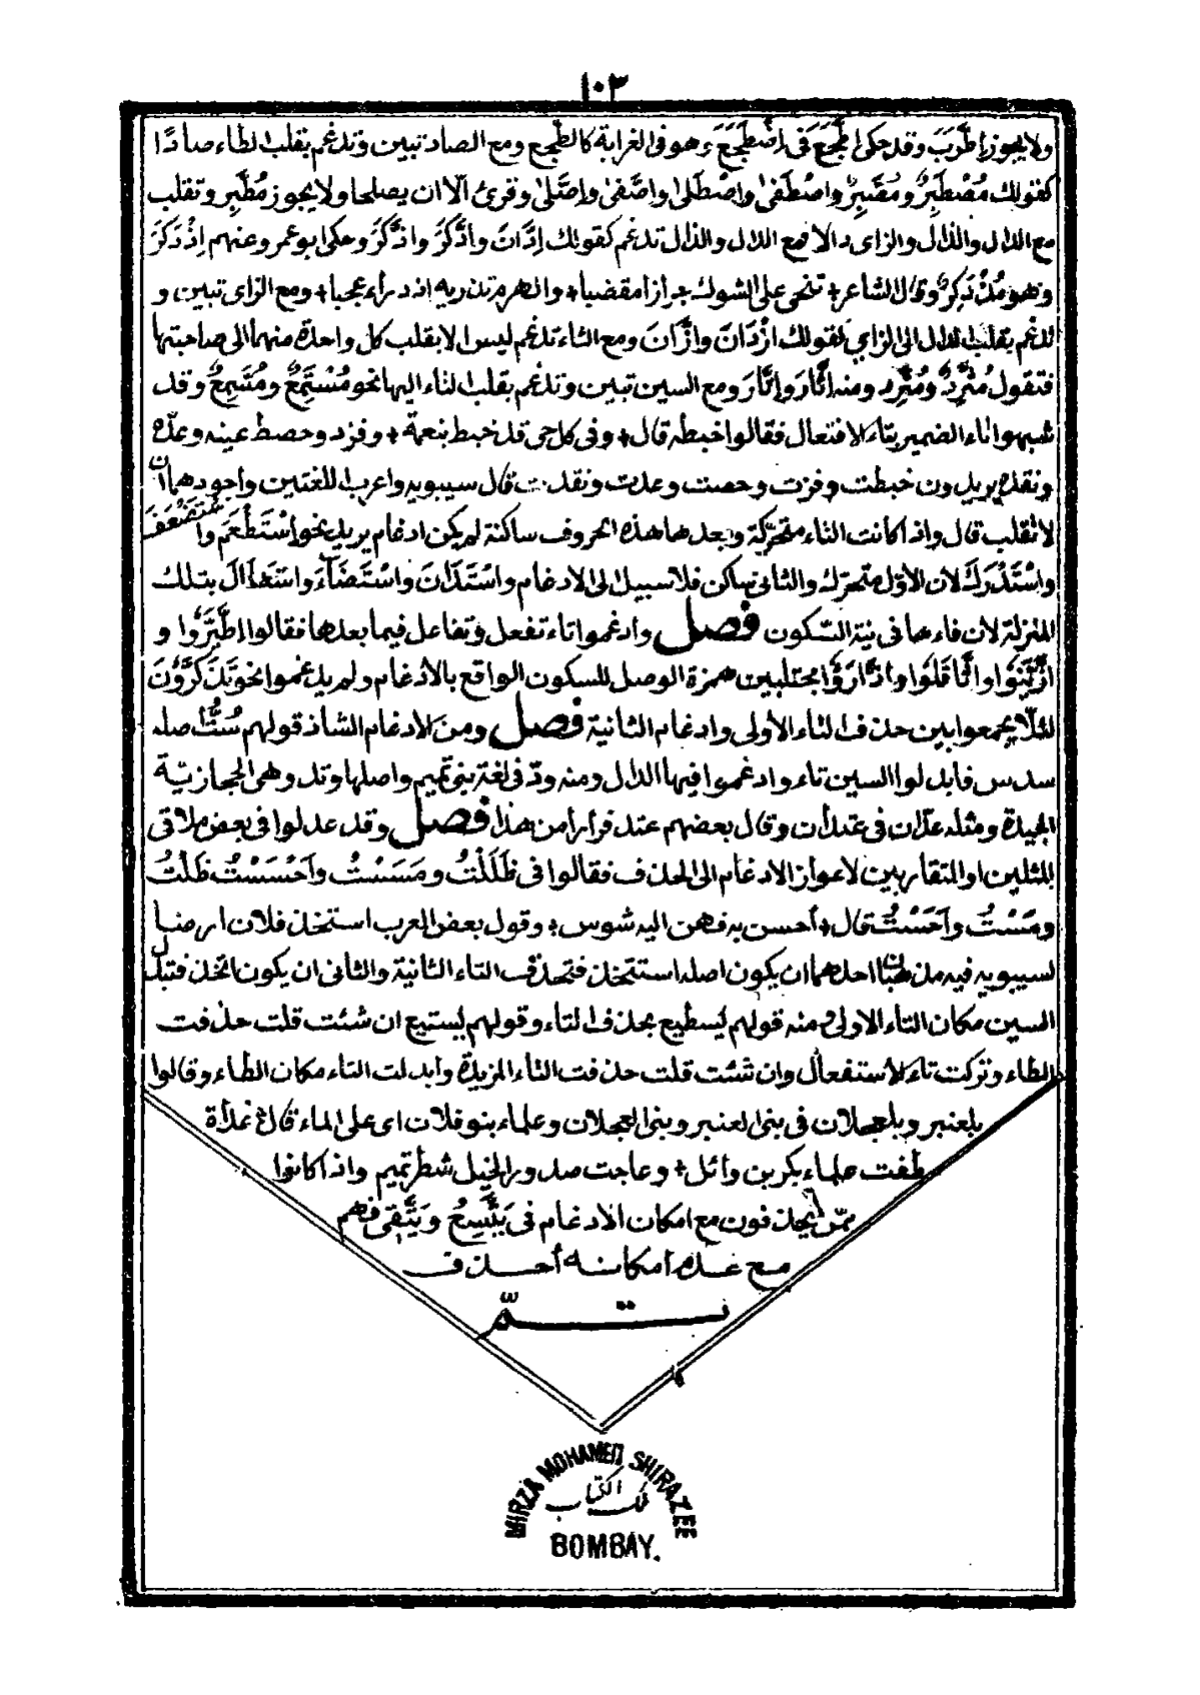 ١٠٣
ولا يجوز اِطَّرَبَ وقد حكى اطَّجَعَ فى اِضْطَجَعَ وهو فى الغرابة كالطجع ومع الصاد تبين وتدغم بقلب الطاء صادًا
كقولك مُصْطَبِرٌ ومُصَّبِرٌ واصْطَفىٰ واصْطَلىٰ واصَّفىٰ واِصَّلىٰ وقرئ الّا ان يصلحا ولا يجوز مُطَّبِر وتقلب
مع الدال والذال والزاى دالا فمع الدال والذال تدغم كقولك اِدَّانَ وادَّكَرَ واذَّكَرَ وحكى ابو عمرو عنهم اِذْدَكَرَ
وهو مُذْدَكِرٌ وقال الشاعر + تنحى على الشوك جرازا مقضبا + والهرم تذريه اذدراء عجبا + ومع الزاى تبين و
تدغم بقلب الدال الى الزاي كقولك ازْدَانَ وازَّانَ ومع الثاء تدغم ليس الا بقلب كل واحدة منهما الى صاحبتها
فتقول مُثَّرِدٌ ومُتَّرِد ومنه اثَّارَ واِتَّارَ ومع السين تبين وتدغم بقلب التاء اليها نحو مُسْتَمِعٌ ومُسَّمِعٌ وقد
شبهوا تاء الضمير بتاء الافتعال فقالوا خبطه قال + وفى كل حى قد خبط بنعمة + وفزد وحصط عينه وعدّه
ونقده يريدون خبطت وفزت وحصت وعدت ونقدت قال سيبويه واعرب اللغتين واجودهما ان
لا تقلب قال واذا كانت التاء متحرّكة وبعدها هذه الحروف ساكنة لم يكن ادغام يريد نحو اسْتَطْعَمَ واسْتَضْعَفَ
واسْتَدْرَكَ لان الاوّل متحرّك والثانى ساكن فلا سبيل الى الادغام واسْتَدَانَ واسْتَضَآءَ واستطال بتلك
المنزلة لان فاءها فى نية السّكون فصل وادغموا تاء تفعل وتفاعل فيما بعدها فقالوا اطَّيَّرُوا و
ازَّيَّنُوا واثَّا قَلُوا وادَّارَؤُا مجتلبين همزة الوصل للسكون الواقع بالادغام ولم يدغموا نحو تَذَكَّرُونَ
لئلّا يجمعوا بين حذف التاء الأولى وادغام الثانية فصل ومن الادغام الشاذ قولهم سُتٌّ اصله
سدس فابدلوا السين تاء وادغموا فيها الدال ومنه ودّ فى لغة بنى تميم واصلها وتد وهى الحجازيّة
الجيدة ومثله عدّان فى عتدان وقال بعضهم عتد فرارا من هذا فصل وقد عدلوا فى بعض ملاقى
المثلين او المتقاربين لاعواز الادغام الى الحذف فقالوا فى ظَلَلْتُ ومَسَسْتُ وأحْسَسْتُ ظَلْتُ
ومَسْتُ وأحَسْتُ قال + أحسن به فهن اليه شوس + وقول بعض العرب استخذ فلان ارضا
لسيبويه فيه مذهبان احدهما ان يكون اصله استتخذ فتحذف التاء الثانية والثانى ان يكون اتخذ فتبدل
السين مكان التاء الاولى ومنه قولهم يسطيع بحذف التاء وقولهم يستيع ان شئت قلت حذفت
الطاء وتركت تاء الاستفعال وان شئت قلت حذفت التاء المزيدة وأبدلت التاء مكان الطاء وقالوا
بلعنبر وبلعجلان فى بنى العنبر وبنى العجلان وعلماء بنو فلان اى على الماء قال غداة
طفت علماء بكر بن وائل + وعاجت صدور الخيل شطر تميم واذا كانوا
ممّن يحذفون مع امكان الادغام فى يَتَّسِعُ ويَتَّقِى فهم
مع عدم امكانه أحذف
تمّ
MIRZA MOHAMED SHIRAZEE
ملك الكتاب
BOMBAY.